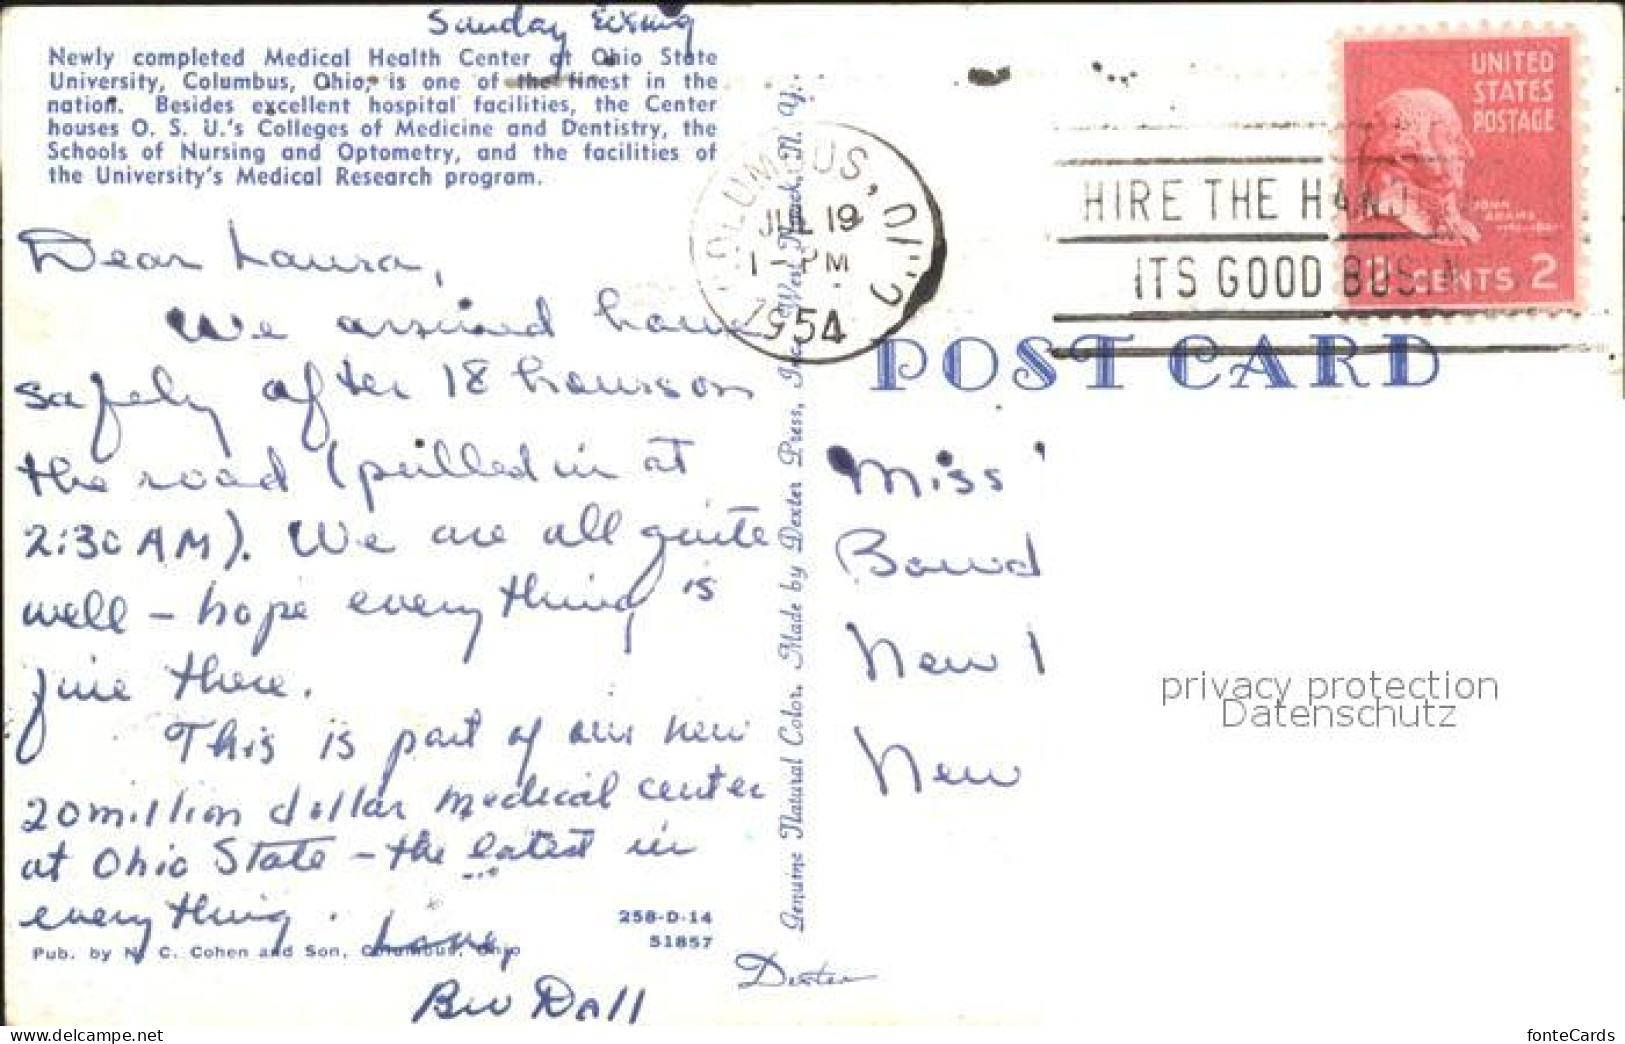 Sunday Evening
Newly completed Medical Health Center at Ohio State
University, Columbus, Ohio, is one of the finest in the
nation. Besides excellent hospital facilities, the Center
houses O. S. U.'s Colleges of Medicine and Dentistry, the
Schools of Nursing and Optometry, and the facilities of
the University's Medical Research program.
Dear Laura,
We arrived home
safely after 18 hours on
the road (pulled in at
2:30 AM). We are all quite
well – hope everything is
fine there.
This is part of our new
20 million dollar medical center
at Ohio State – the latest in
everything.
Love,
Bev Dall
Pub. by N. C. Cohen and Son, Columbus, Ohio
258-D-14
51857
Genuine Natural Color. Made by Dexter Press, Inc., West Nyack, N. Y.
Dexter
COLUMBUS, OHIO
JUL 19
PM
1954
HIRE THE HAND
ITS GOOD BUSIN
UNITED
STATES
POSTAGE
JOHN
ADAMS
2 CENTS 2
POST CARD
Miss
Bowd
New
New
privacy protection
Datenschutz
www.delcampe.net
fonteCards